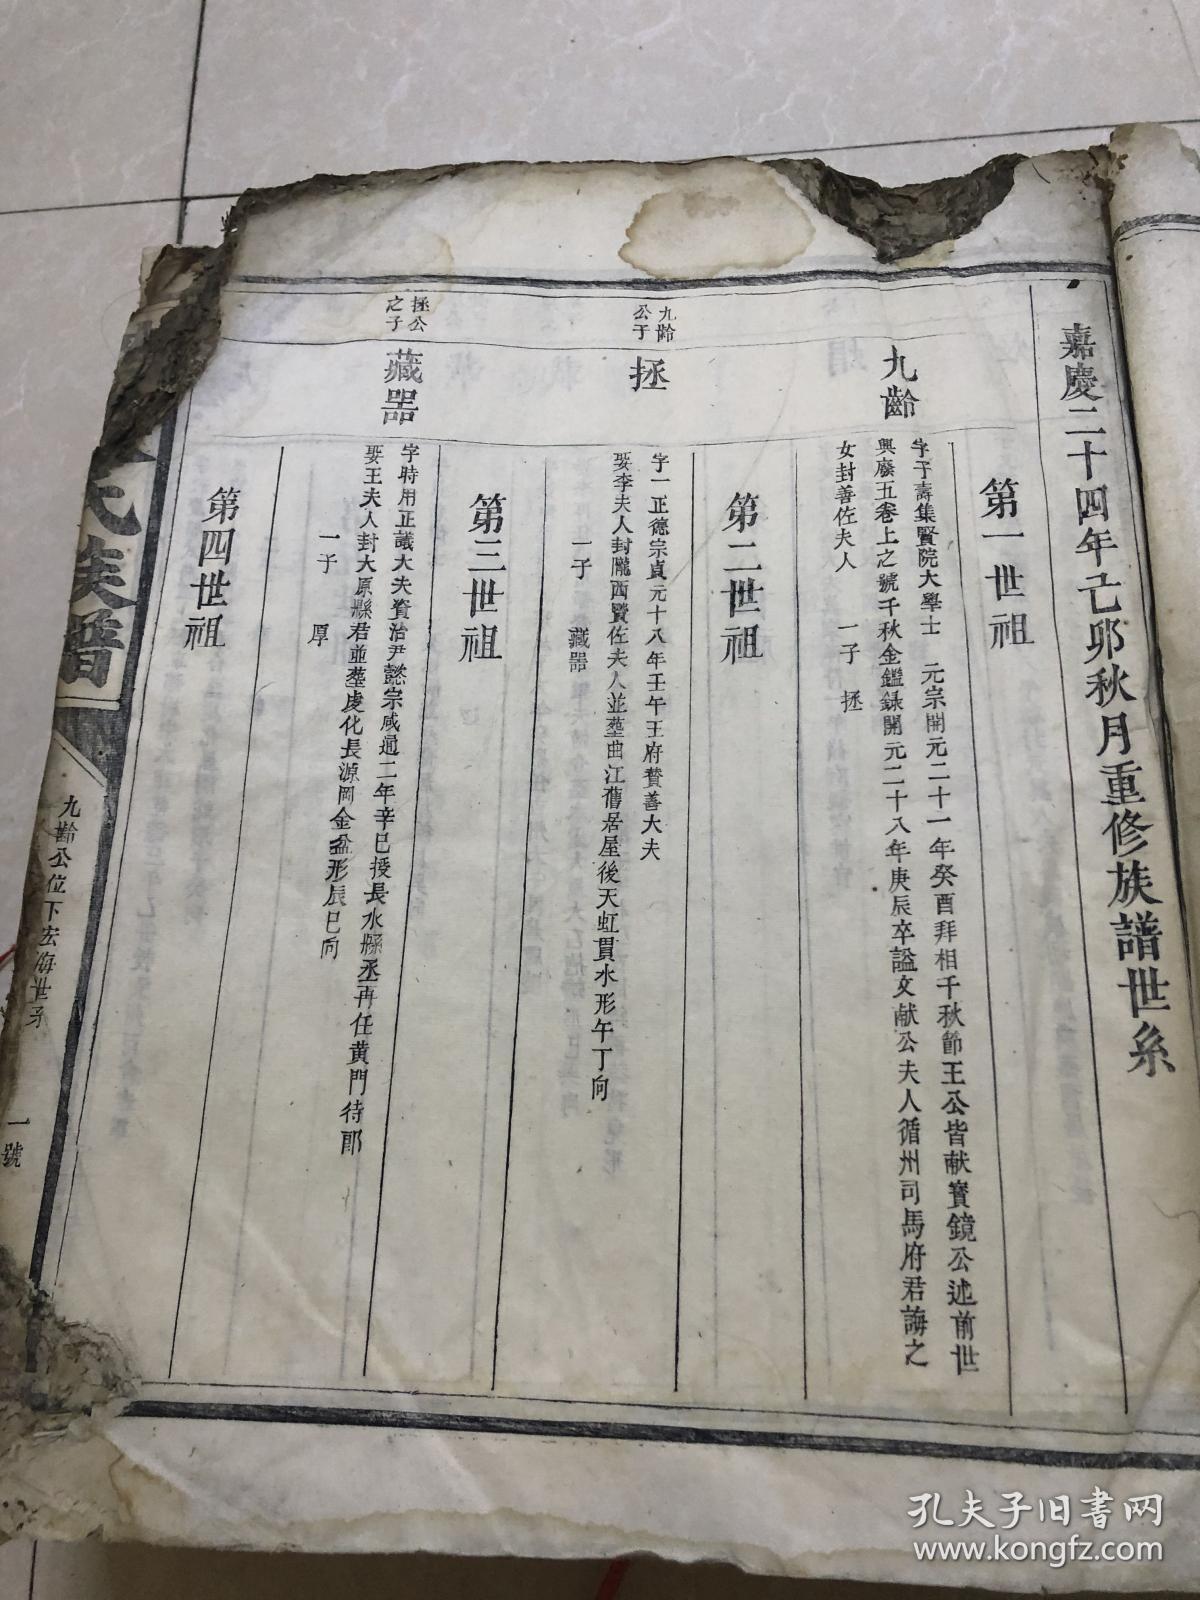 嘉慶二十四年己卯秋月重修族譜世系
第一世祖
九齡
字子壽集賢院大學士 元宗開元二十一年癸酉拜相千秋節王公皆献寳鏡公述前世
興廢五卷上之號千秋金鑑録開元二十八年庚辰卒謚文献公夫人循州司馬府君誨之
女封善佐夫人 一子 拯
第二世祖
九齡
公子
拯
字一正德宗貞元十八年壬午王府賛善大夫
娶李夫人封隴西賢佐夫人並塟曲江舊居屋後天虹貫水形午丁向
一子 藏器
第三世祖
拯公
之子
藏器
字時用正議大夫資治尹懿宗咸通二年辛巳授長水縣丞再任黄門待郎
娶王夫人封大原縣君並塟虔化長源岡金盆形辰巳向
一子 厚
第四世祖
氏族譜
九齡公位下宏海世系
一號
孔夫子旧书网
www.kongfz.com